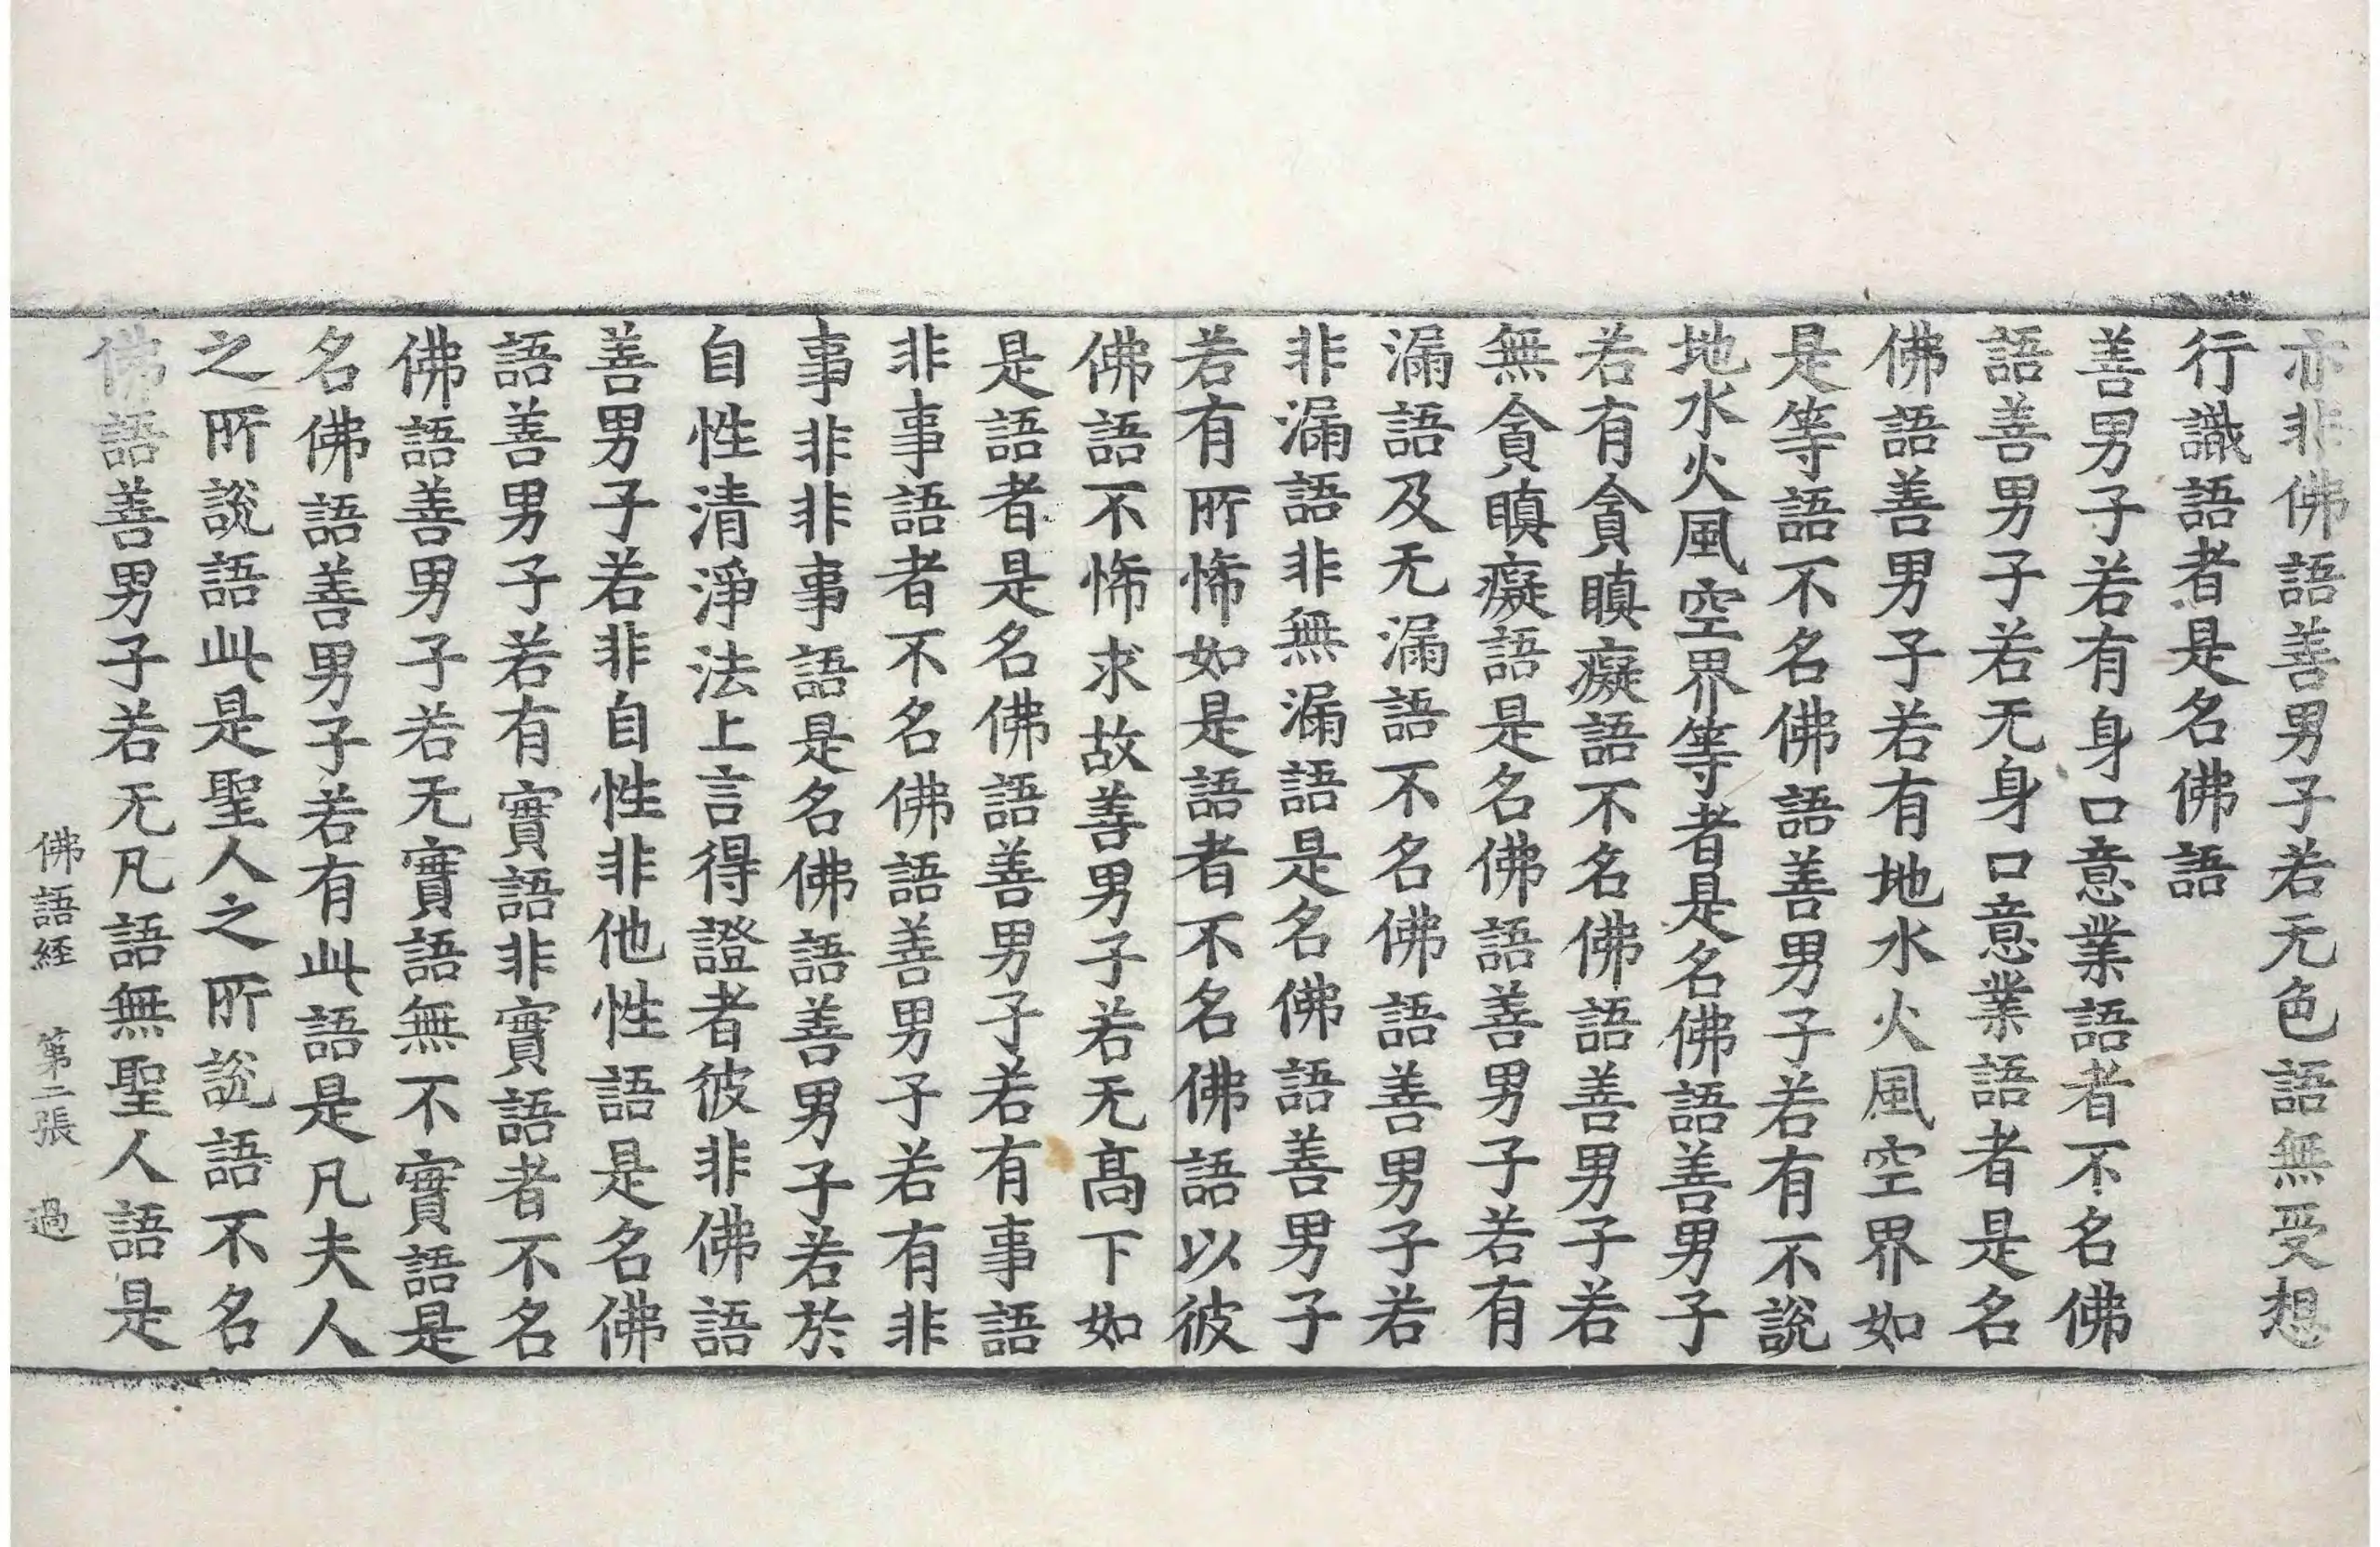 亦非佛語善男子若无色語無受想
行識語者是名佛語
善男子若有身口意業語者不名佛
語善男子若无身口意業語者是名
佛語善男子若有地水火風空界如
是等語不名佛語善男子若有不說
地水火風空界等者是名佛語善男子
若有貪瞋癡語不名佛語善男子若
無貪瞋癡語是名佛語善男子若有
漏語及无漏語不名佛語善男子若
非漏語非無漏語是名佛語善男子
若有所怖如是語者不名佛語以彼
佛語不怖求故善男子若无髙下如
是語者是名佛語善男子若有事語
非事語者不名佛語善男子若有非
事非非事語是名佛語善男子若於
自性清淨法上言得證者彼非佛語
善男子若非自性非他性語是名佛
語善男子若有實語非實語者不名
佛語善男子若无實語無不實語是
名佛語善男子若有此語是凡夫人
之所說語此是聖人之所說語不名
佛語善男子若无凡語無聖人語是
佛語経 第二張 過